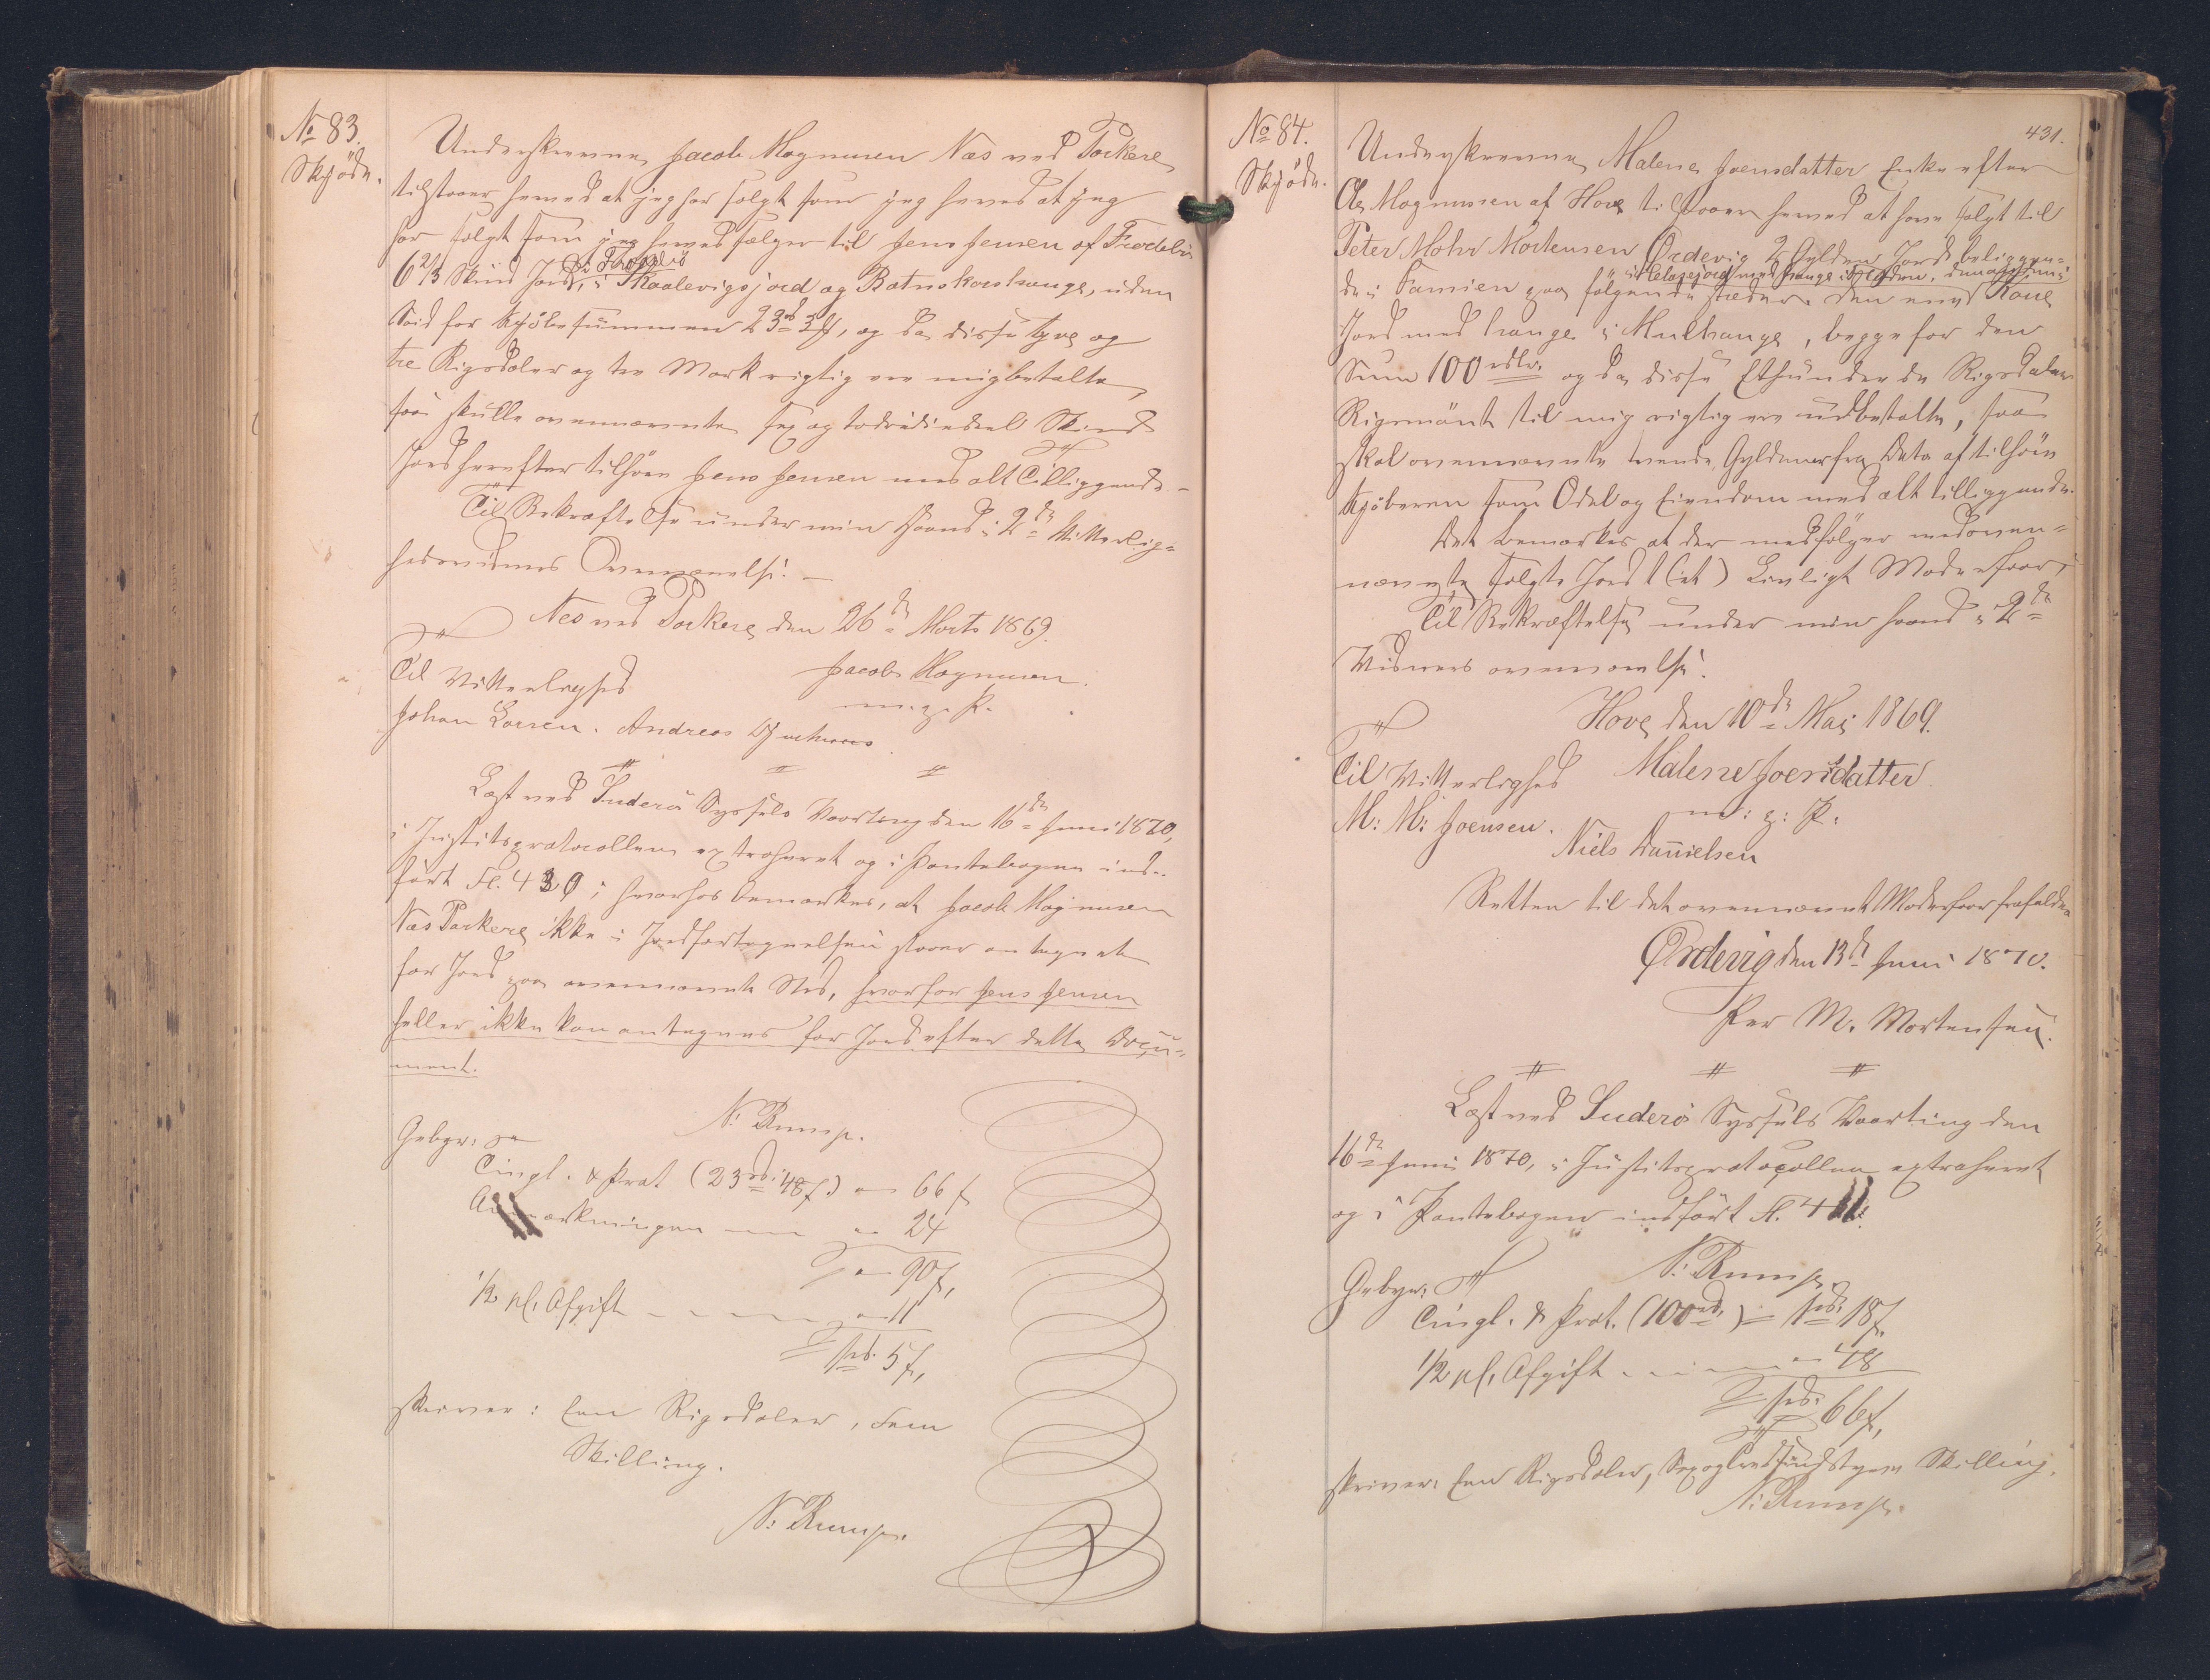 No 83.
Skjöde.
Underskrevne Jacob Magnusen Næs ved Porkere
tilstaaer herved at jeg har solgt som jeg herved at jeg
har solgt som jeg herved sælger til Jens Jensen af Frodebö
6 2/3 Skind Jord, i Skaalevigsjord og Botnskorshauge, uden
i Froddebö
Seid for Kjöbesummen 23 rd 3 mk, og da disse tyve og
tre Rigsdaler og tre Mark rigtig ere mig betalte,
saa skulle ovennævnte sex og totrediedeel Skind
Jord herefter tilhöre Jens Jensen med alt Tilliggende. -
Til Bekræftelse under min Haand i 2de Vitterlig=
hedsvidners Overværelse. -
Nes ved Porkere den 26de Marts 1869.
Til Vitterlighed
Jacob Magnusen.
m. g. P.
Johan Larsen. Andreas
Læst ved Suderö Syssels Vaarting den 16de Juni 1870,
i Justitsprotocollen extraheret og i Pantebogen ind-
fört Fl. 430; hvorhos bemærkes, at Jacob Magnusen
Næs Porkere ikke i Jordfortegnelsen staaer antegnet
for Jord paa ovennævnte Sted, hvorfor Jens Jensen
heller ikke kan antegnes for Jord efter dette Docu=
ment.
N: Rump.
Gebyr:
Tingl. & Prot (23 rd: 48 s) - 66 s
Anmærkningen - 24
90 s,
1/2 pCt. Afgift - 11
1 rd. 5 s,
skriver: Een Rigsdaler, Fem
Skilling.
N: Rump.
431.
No 84.
Skjöde.
Underskrevne Malene Joensdatter Enke efter
Ole Magnussen af Hove tilstaaer herved at have solgt til
Peter Mohr Mortensen Ördevig 2 Gylden Jord beliggen=
de i Famien paa fölgende Steder. den ene i
Jord med hauge i Mulhauge, begge for den
Sum 100 rdlr. og da disse Ethundrede Rigsdaler
Rigsmönt til mig rigtig ere udbetalte, saa
skal ovennævnte tvende Gylden fra Dato af tilhöre
Kjöberen som Odel og Eiendom med alt tilliggende.
Det bemærkes at der medfölger med oven=
nævnte solgte Jord 1 (et) Livligt Moderfaar,
Til Bekræftelse under min Haand i 2de
Vidners overværelse.
Hove den 10de Mai 1869.
Til Vitterlighed
Malene Joensdatter
m: g: P.
M: M: Joensen.
Niels Danielsen
Retten til det ovennævnte Moderfaar frafalder
Ördevig den 13de Juni 1870.
Per M. Mortensen.
Læst ved Suderö Syssels Vaarting den
16de Juni 1870, i Justitsprotocollen extraheret
og i Pantebogen indfört Fl.
N: Rump.
Gebyr:
Tingl. & Prot. (100 rd.) = 1 rd: 18 s,
1/2 pCt. Afgift - 48
1 rd: 66 s,
skriver: Een Rigsdaler, Sex og Tredsindstyve Skilling,
N: Rump.